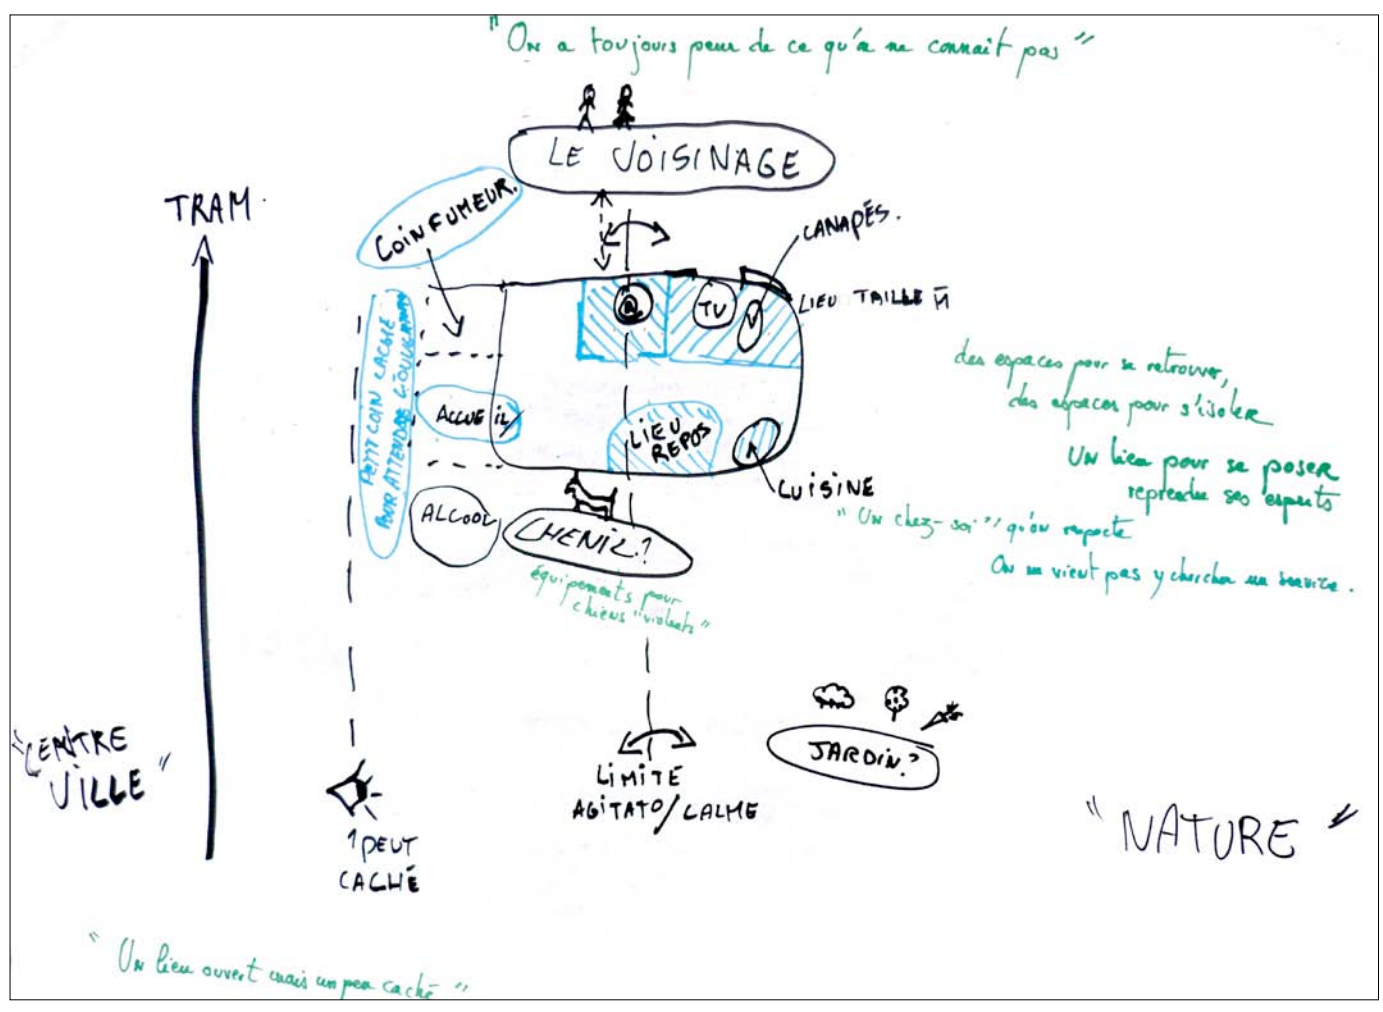 "On a toujours peur de ce qu'on ne connait pas"
LE VOISINAGE
TRAM.
COIN FUMEUR.
CANAPÉS.
TV
LIEU TAILLE M
PETIT COIN CACHÉ
POUR ATTENDRE L'OUVERTURE
ACCUEIL
LIEU
REPOS
CUISINE
ALCOOL
CHENIL?
équipements pour
chiens "violents"
des espaces pour se retrouver,
des espaces pour s'isoler
Un lieu pour se poser
reprendre ses esprits
"Un chez-soi" qu'on respecte
On ne vient pas y chercher un service.
"CENTRE
VILLE"
1 PEUT
CACHÉ
LIMITE
AGITATO/CALME
JARDIN?
"NATURE"
"Un lieu ouvert mais un peu caché"